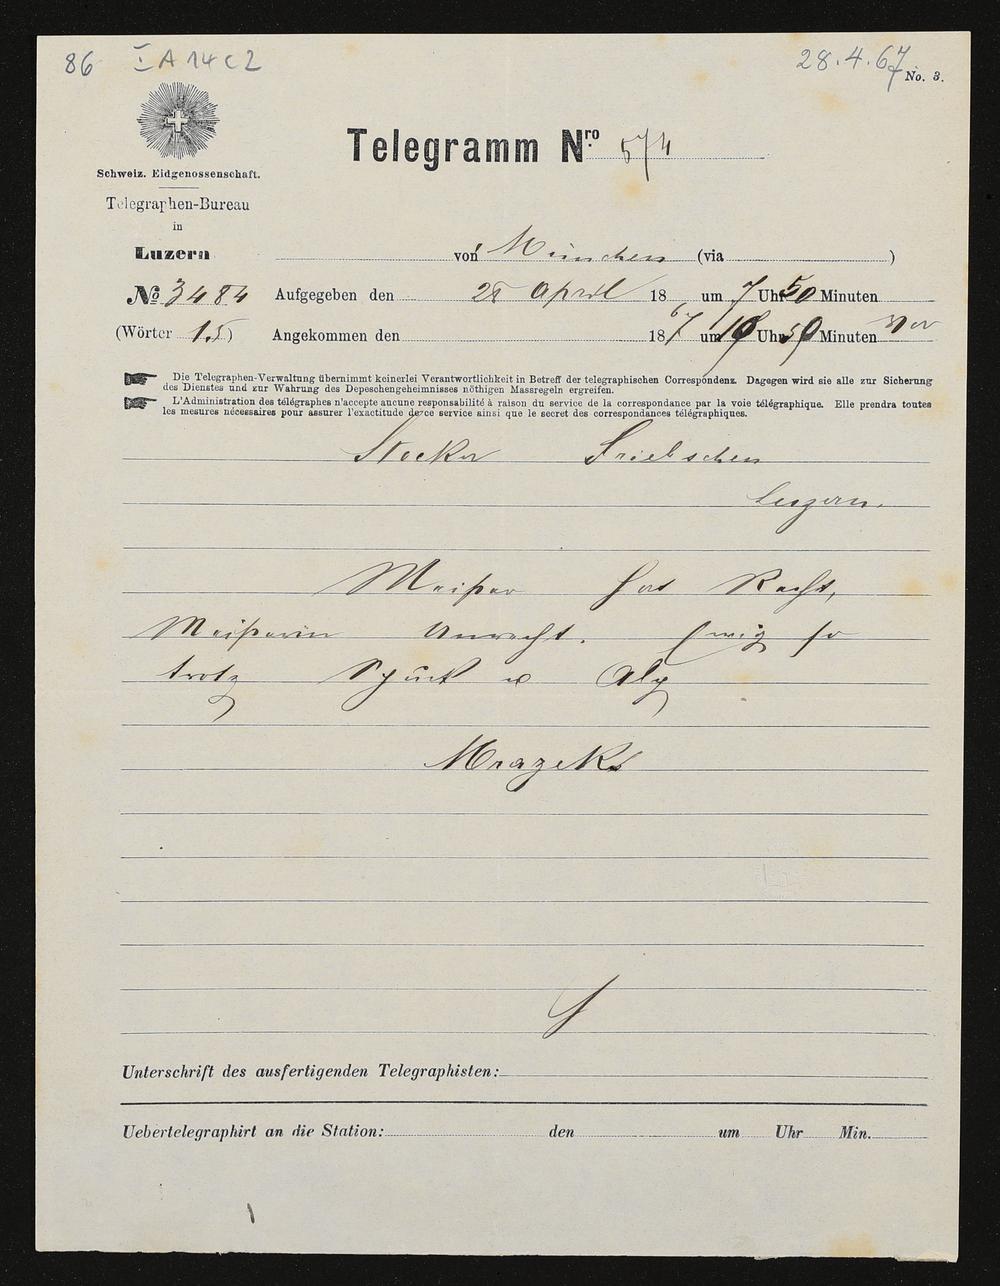 86 I A 14 c 2
28.4.67
No. 3.
Telegramm Nro. 574
Schweiz. Eidgenossenschaft.
Telegraphen-Bureau
in
Luzern von München (via )
No 3484 Aufgegeben den 28 April 18 um 7 Uhr 50 Minuten
(Wörter 15) Angekommen den 1867 um 10 Uhr 50 Minuten
Die Telegraphen-Verwaltung übernimmt keinerlei Verantwortlichkeit in Betreff der telegraphischen Correspondenz. Dagegen wird sie alle zur Sicherung
des Dienstes und zur Wahrung des Depeschengeheimnisses nöthigen Massregeln ergreifen.
L'Administration des télégraphes n'accepte aucune responsabilité à raison du service de la correspondance par la voie télégraphique. Elle prendra toutes
les mesures nécessaires pour assurer l'exactitude de ce service ainsi que le secret des correspondances télégraphiques.
Stocker Triebschen
Luzern.
Meister hat Recht,
Meisterin Unrecht. Ewig so
trotz Spuk u Alp
Mrazeks
Unterschrift des ausfertigenden Telegraphisten:
Uebertelegraphirt an die Station: den um Uhr Min.